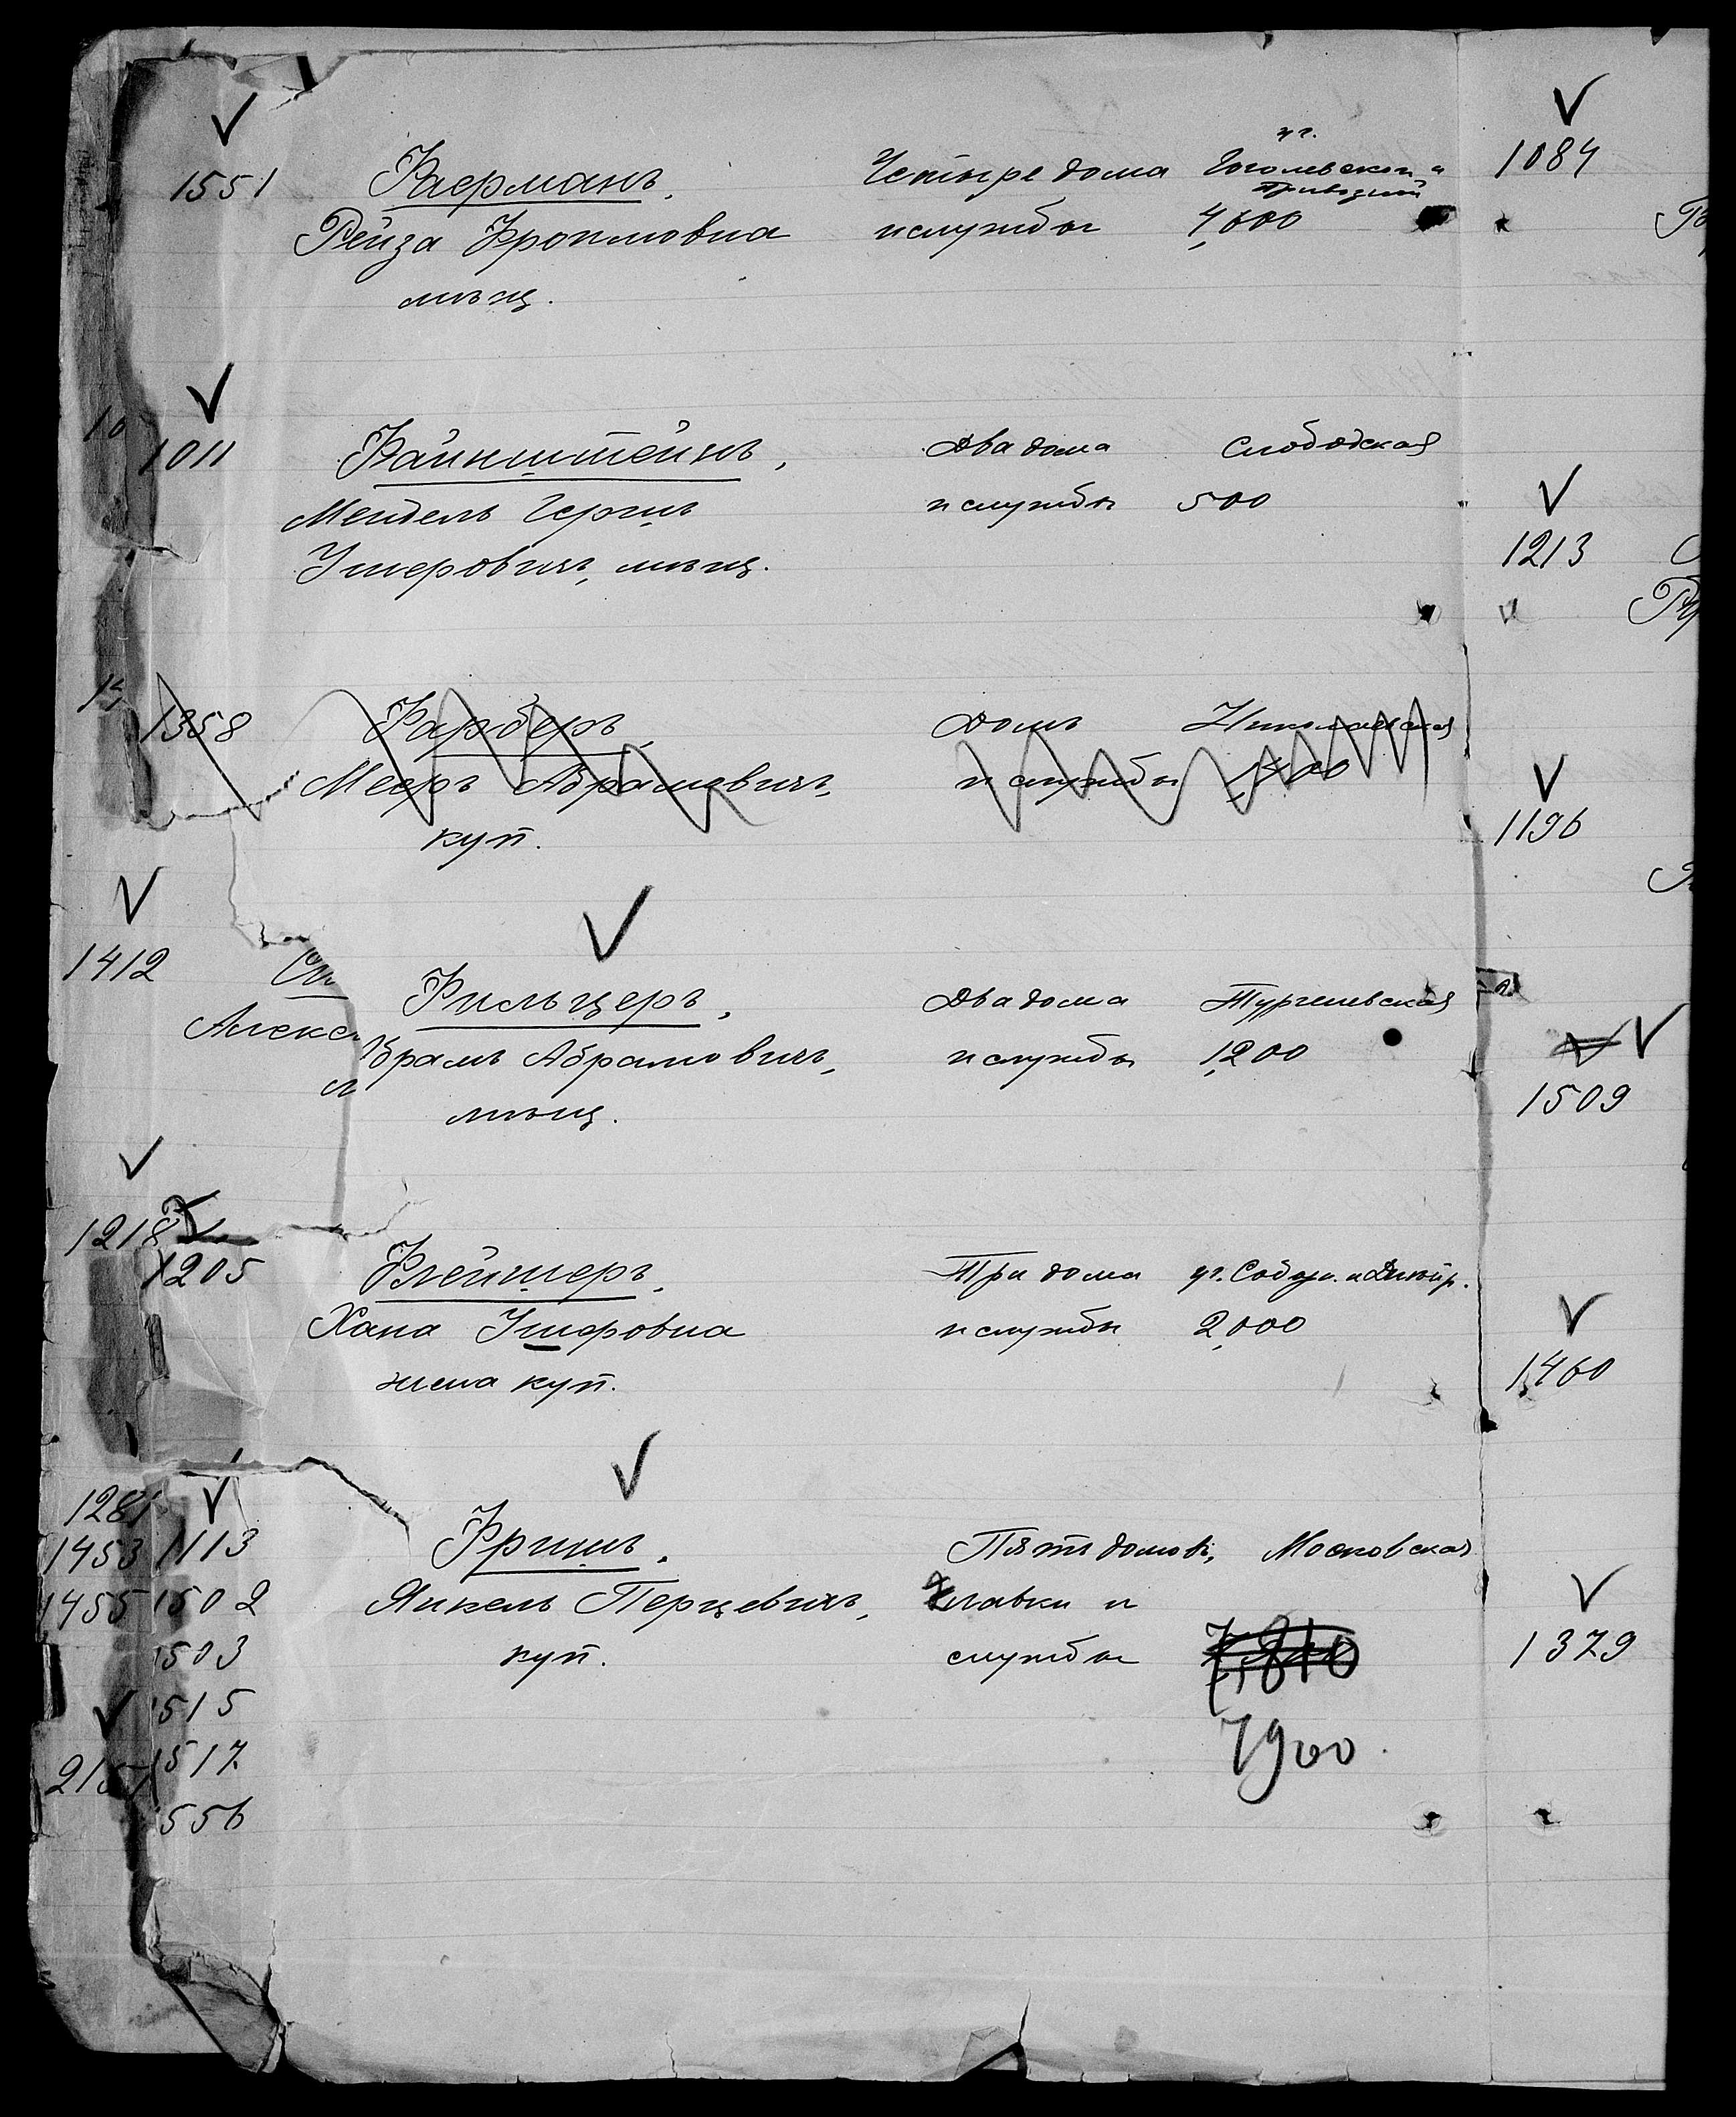 1551 Фаерманъ. Четыре дома уг. Гоголевской и
Рейза Фроимовна и службы 4,600
мѣщ.
1011 Файнштейнъ, Два дома Слободская
Мендель Герцъ и службы 500
Ушеровичъ, мѣщ.
1358 Фарберъ, Домъ Николаевская
Мееръ Абрамовичъ, и службы
куп.
1412
Фильцеръ, Два дома Тургеневская
Алекс
Абрамовичъ, и службы 1,200
мѣщ.
1218
1205 Флейшеръ, Три дома
Хана Ушеровна и службы 2,000
жена куп.
1281
1453 1113 Фришъ. Пять домовъ, Московская
1455 1502 Янкель Перцевичъ, лавки и
1503 куп. службы
1515
7900.
1517
1556
1084
1213
1196
1509
1460
1379